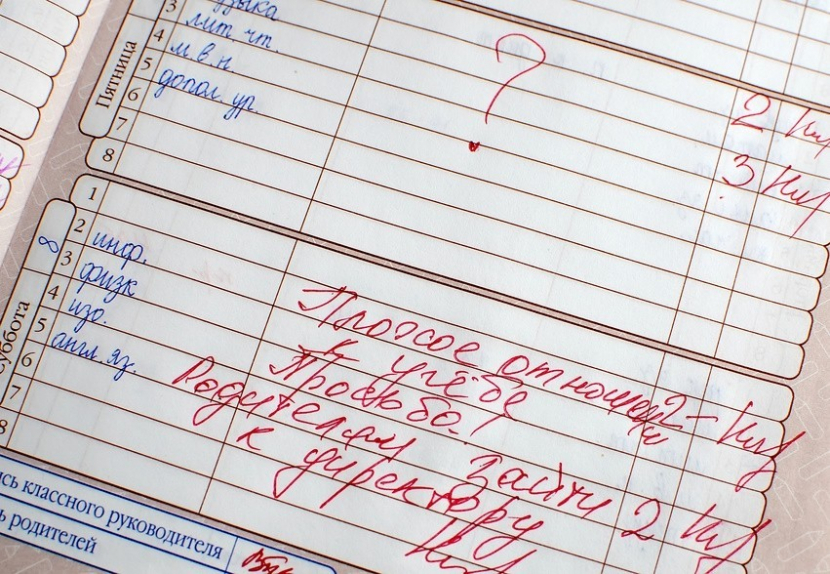 3 музыка
4 лит чт.
5 м.в.н.
6 допол. ур.
7
8
Пятница
?
2
3
1
2 инф.
3 физк
4 изо.
5 англ. яз.
6
7
8
суббота
Плохое отношен
к учёбе 2-
Просьба!
Родителям зайти 2
к директору
сь классного руководителя
ь родителей